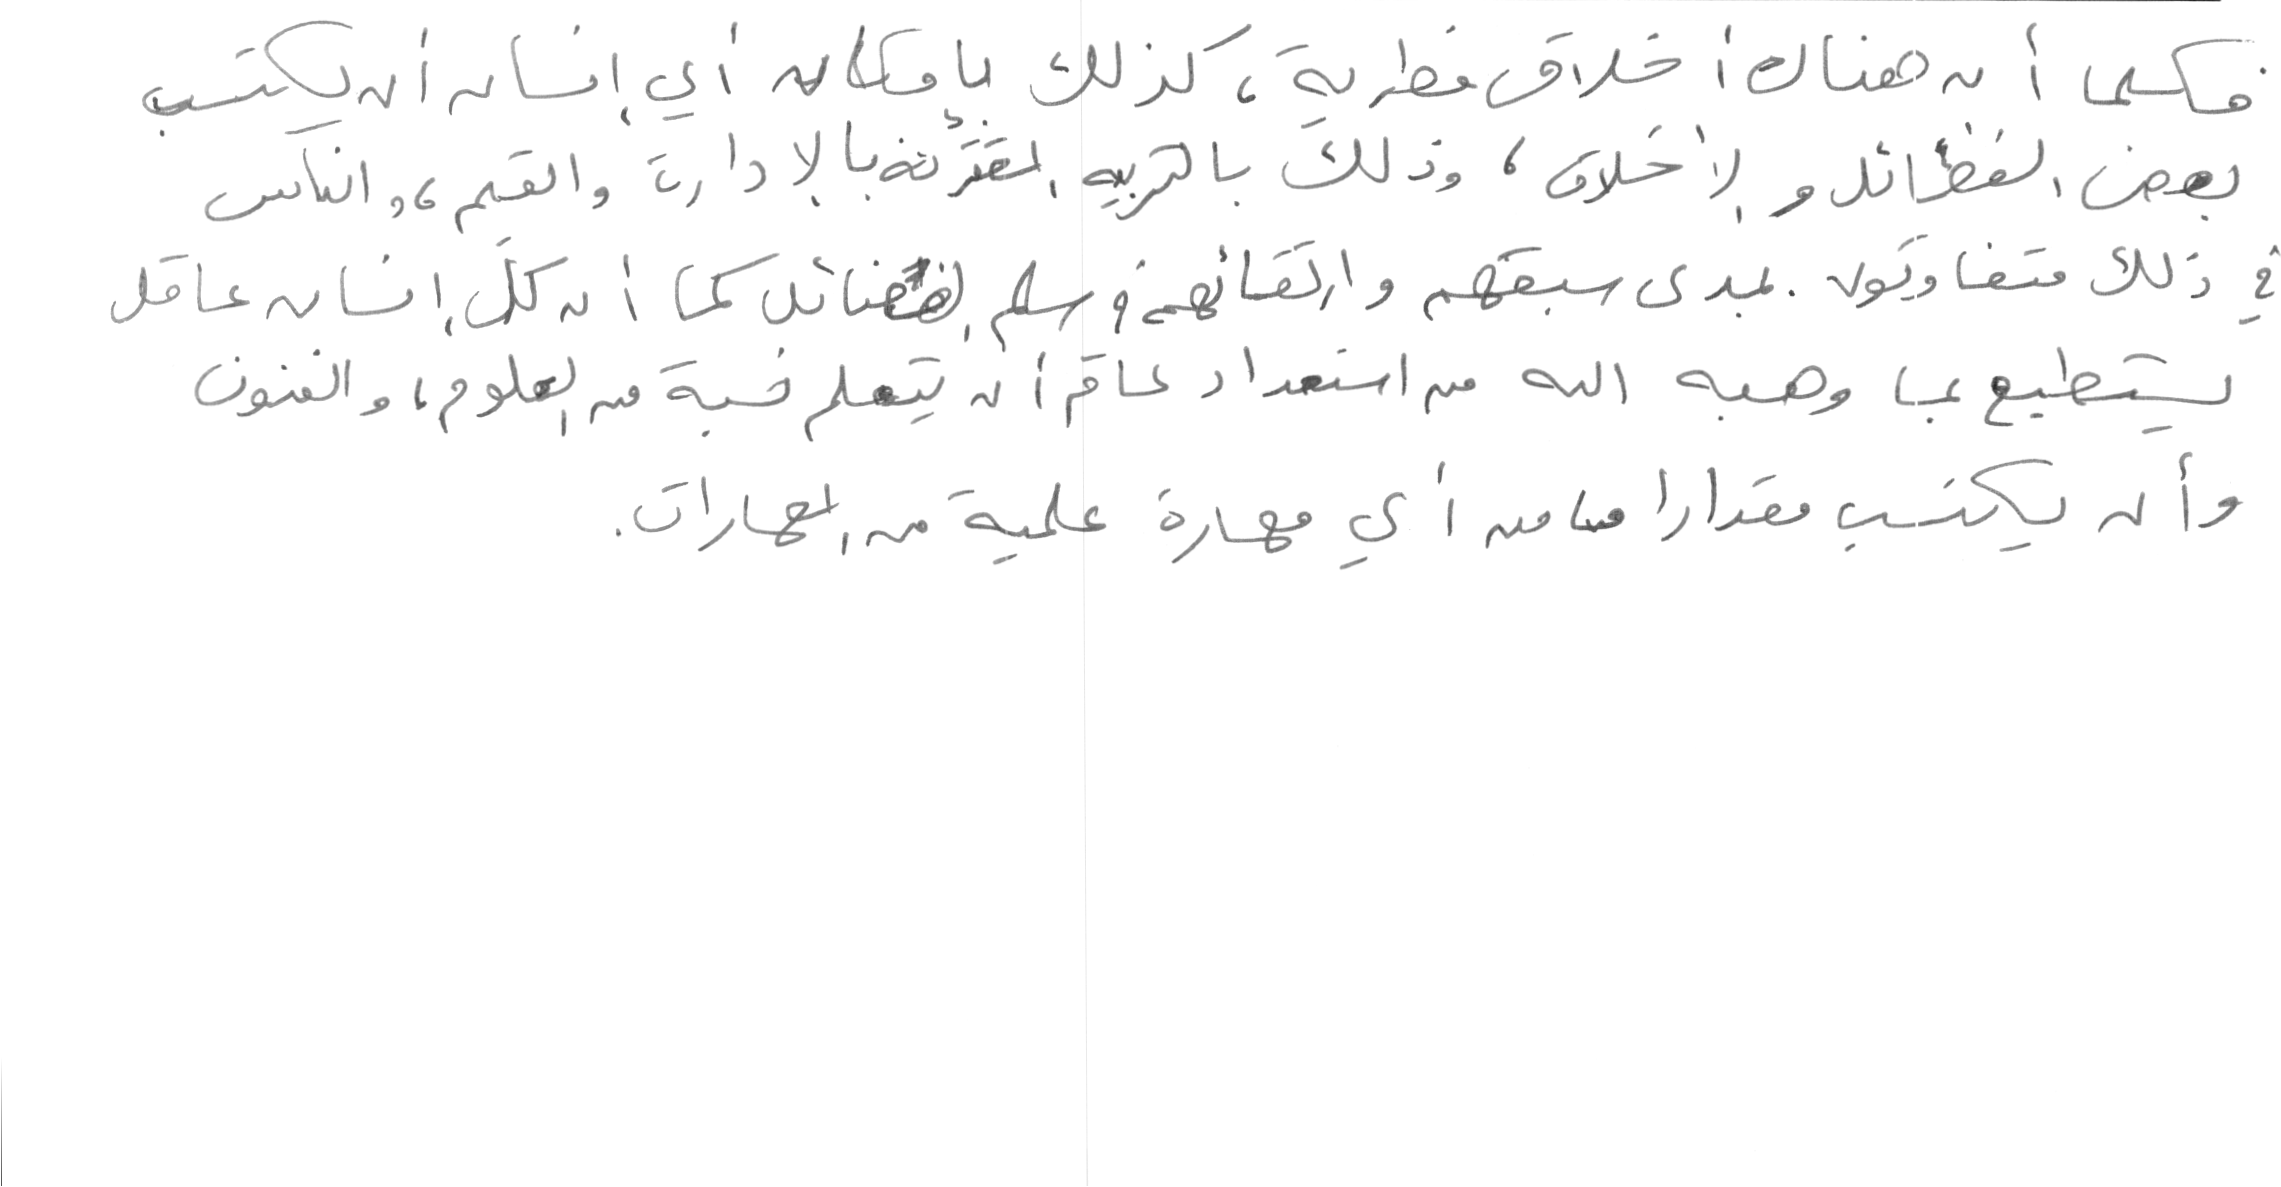 فكما أن هناك أخلاق فطرية، كذلك بإمكان أي إنسان أن يكتسب
بعض الفظائل والأخلاق، وذلك بالتربية المقترنة بالإدارت والقيم، والناس
في ذلك متفاوتون. بمدى سبقهم وارتقائهم في سلم الفضائل كما أن كل إنسان عاقل
يستطيع بما وهبه الله من استعداد عام أن يتعلم نسبة من العلوم، والفنون
وأن يكتسب مقدارا ما من أي مهارة علمية من المهارات.